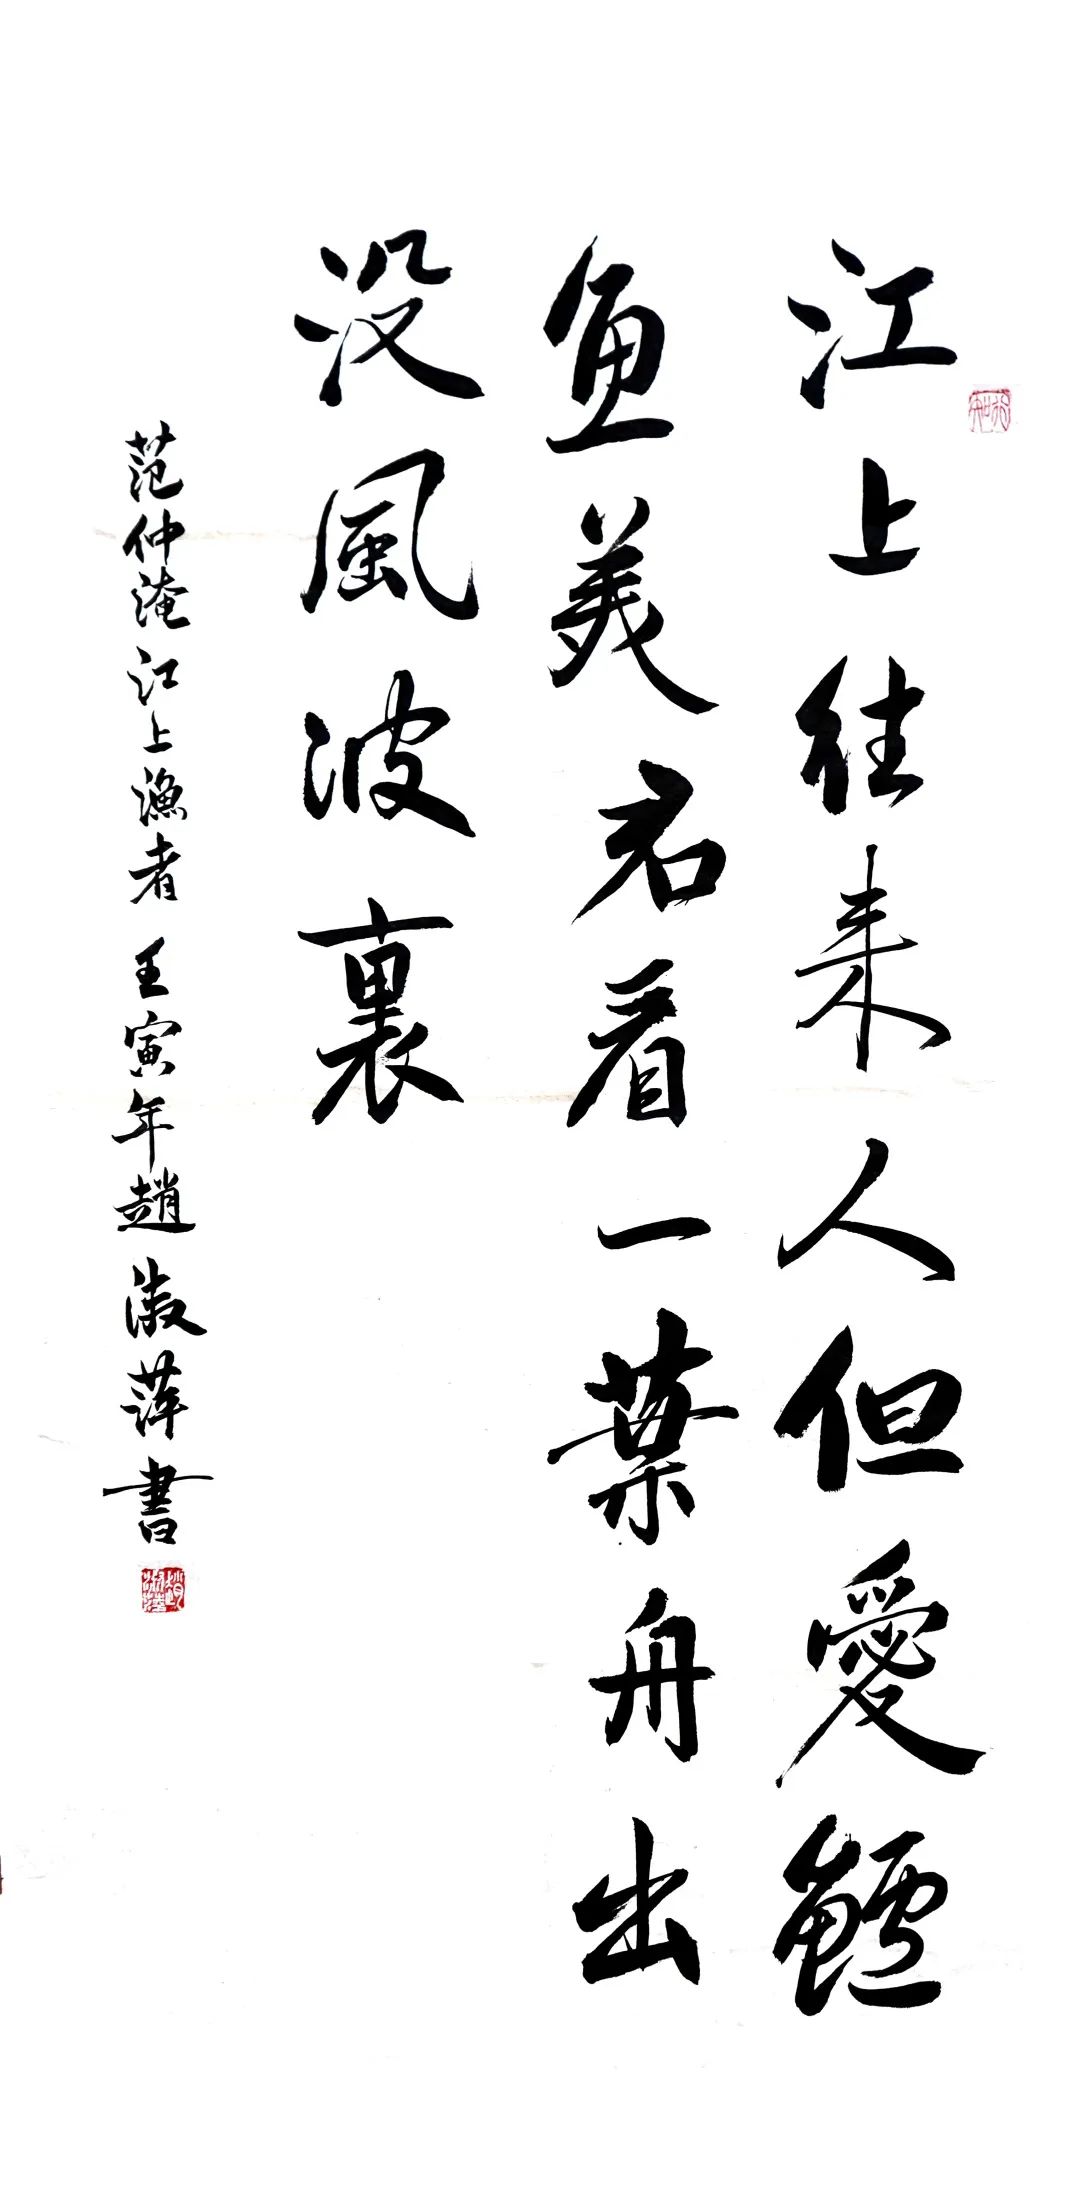 江上往来人但愛鱸
魚美君看一葉舟出
没風波裏
范仲淹江上漁者 壬寅年趙淑萍書
趙淑萍